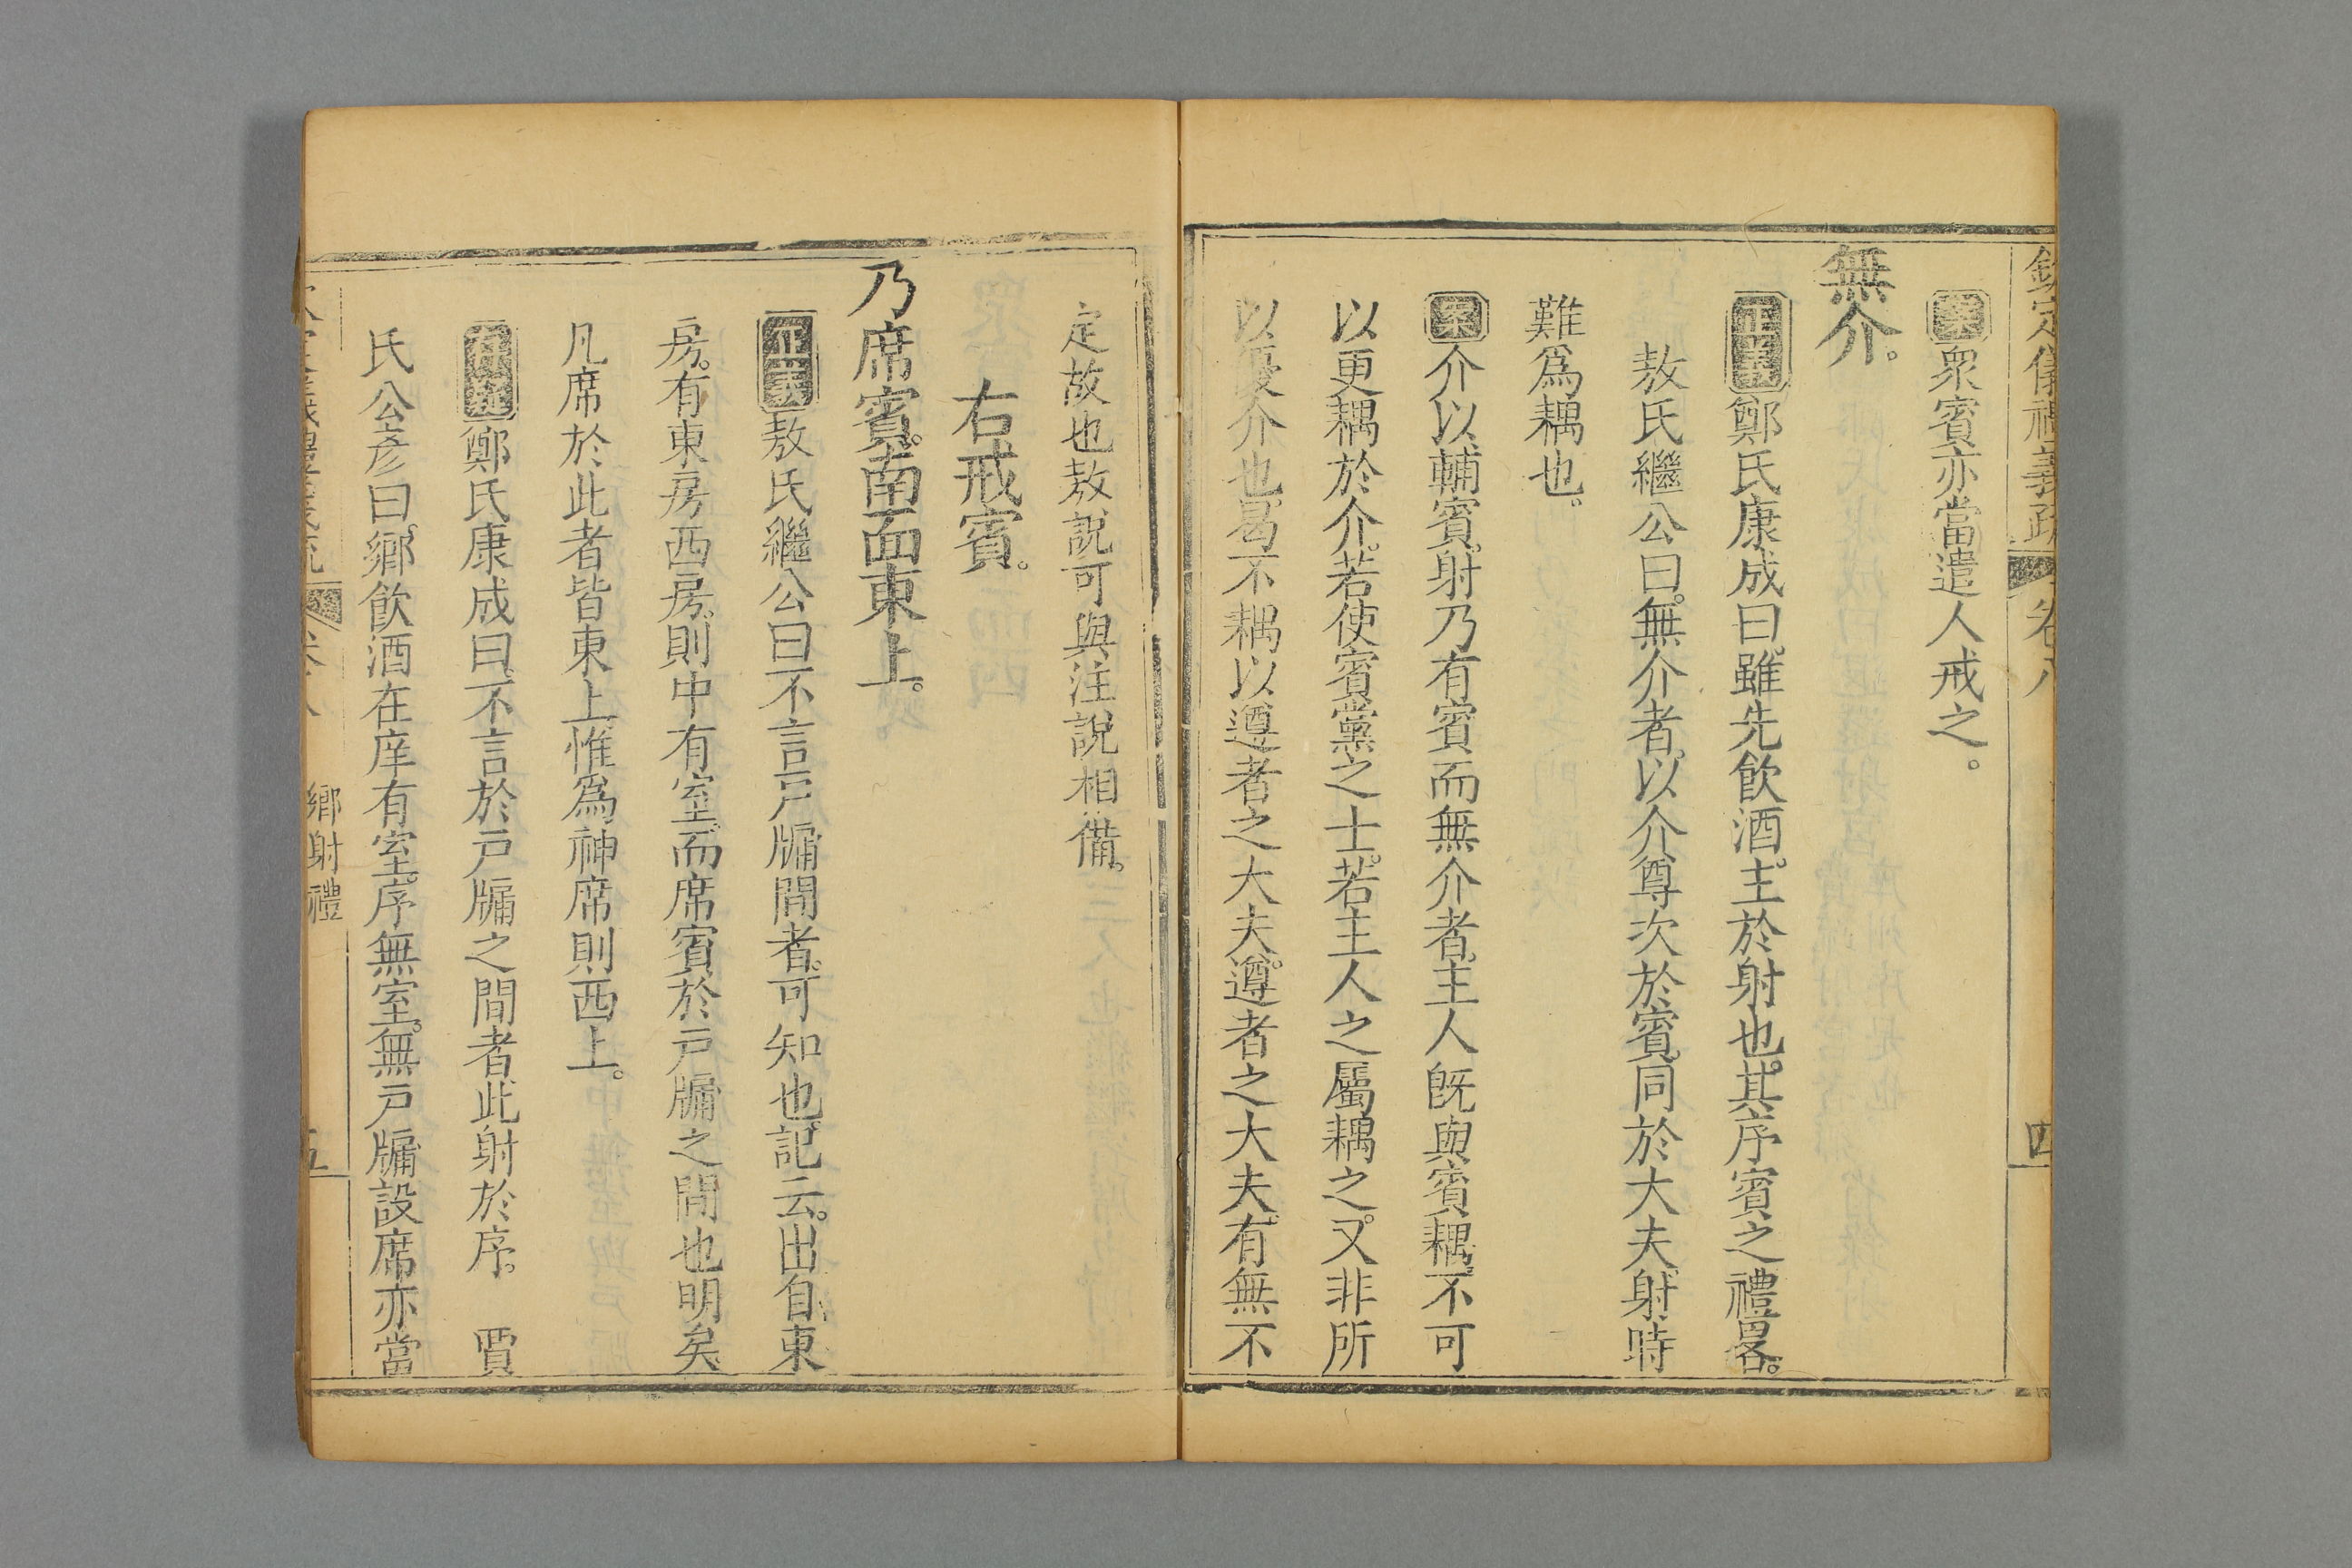 欽定儀禮義疏 卷八 四
案眾賓亦當遣人戒之。
無介。
正義鄭氏康成曰。雖先飲酒。主於射也。其序賓之禮畧。
敖氏繼公曰。無介者。以介尊次於賓。同於大夫。射時
難爲耦也。
案介以輔賓。射乃有賓而無介者。主人旣與賓耦。不可
以更耦於介。若使賓黨之士。若主人之屬耦之。又非所
以優介也。曷不耦以遵者之大夫。遵者之大夫。有無不
定故也。敖說可與注說相備。
右戒賓。
乃席賓。南面東上。
正義敖氏繼公曰。不言戶牖間者。可知也。記云。出自東
房。有東房西房。則中有室。而席賓於戶牖之間也明矣
凡席於此者皆東上。惟爲神席則西上。
存疑鄭氏康成曰。不言於戶牖之間者。此射於序。 賈
氏公彥曰。鄉飲酒在庠有室。序無室。無戶牖設席亦當
欽定儀禮義疏 卷八 鄉射禮 五